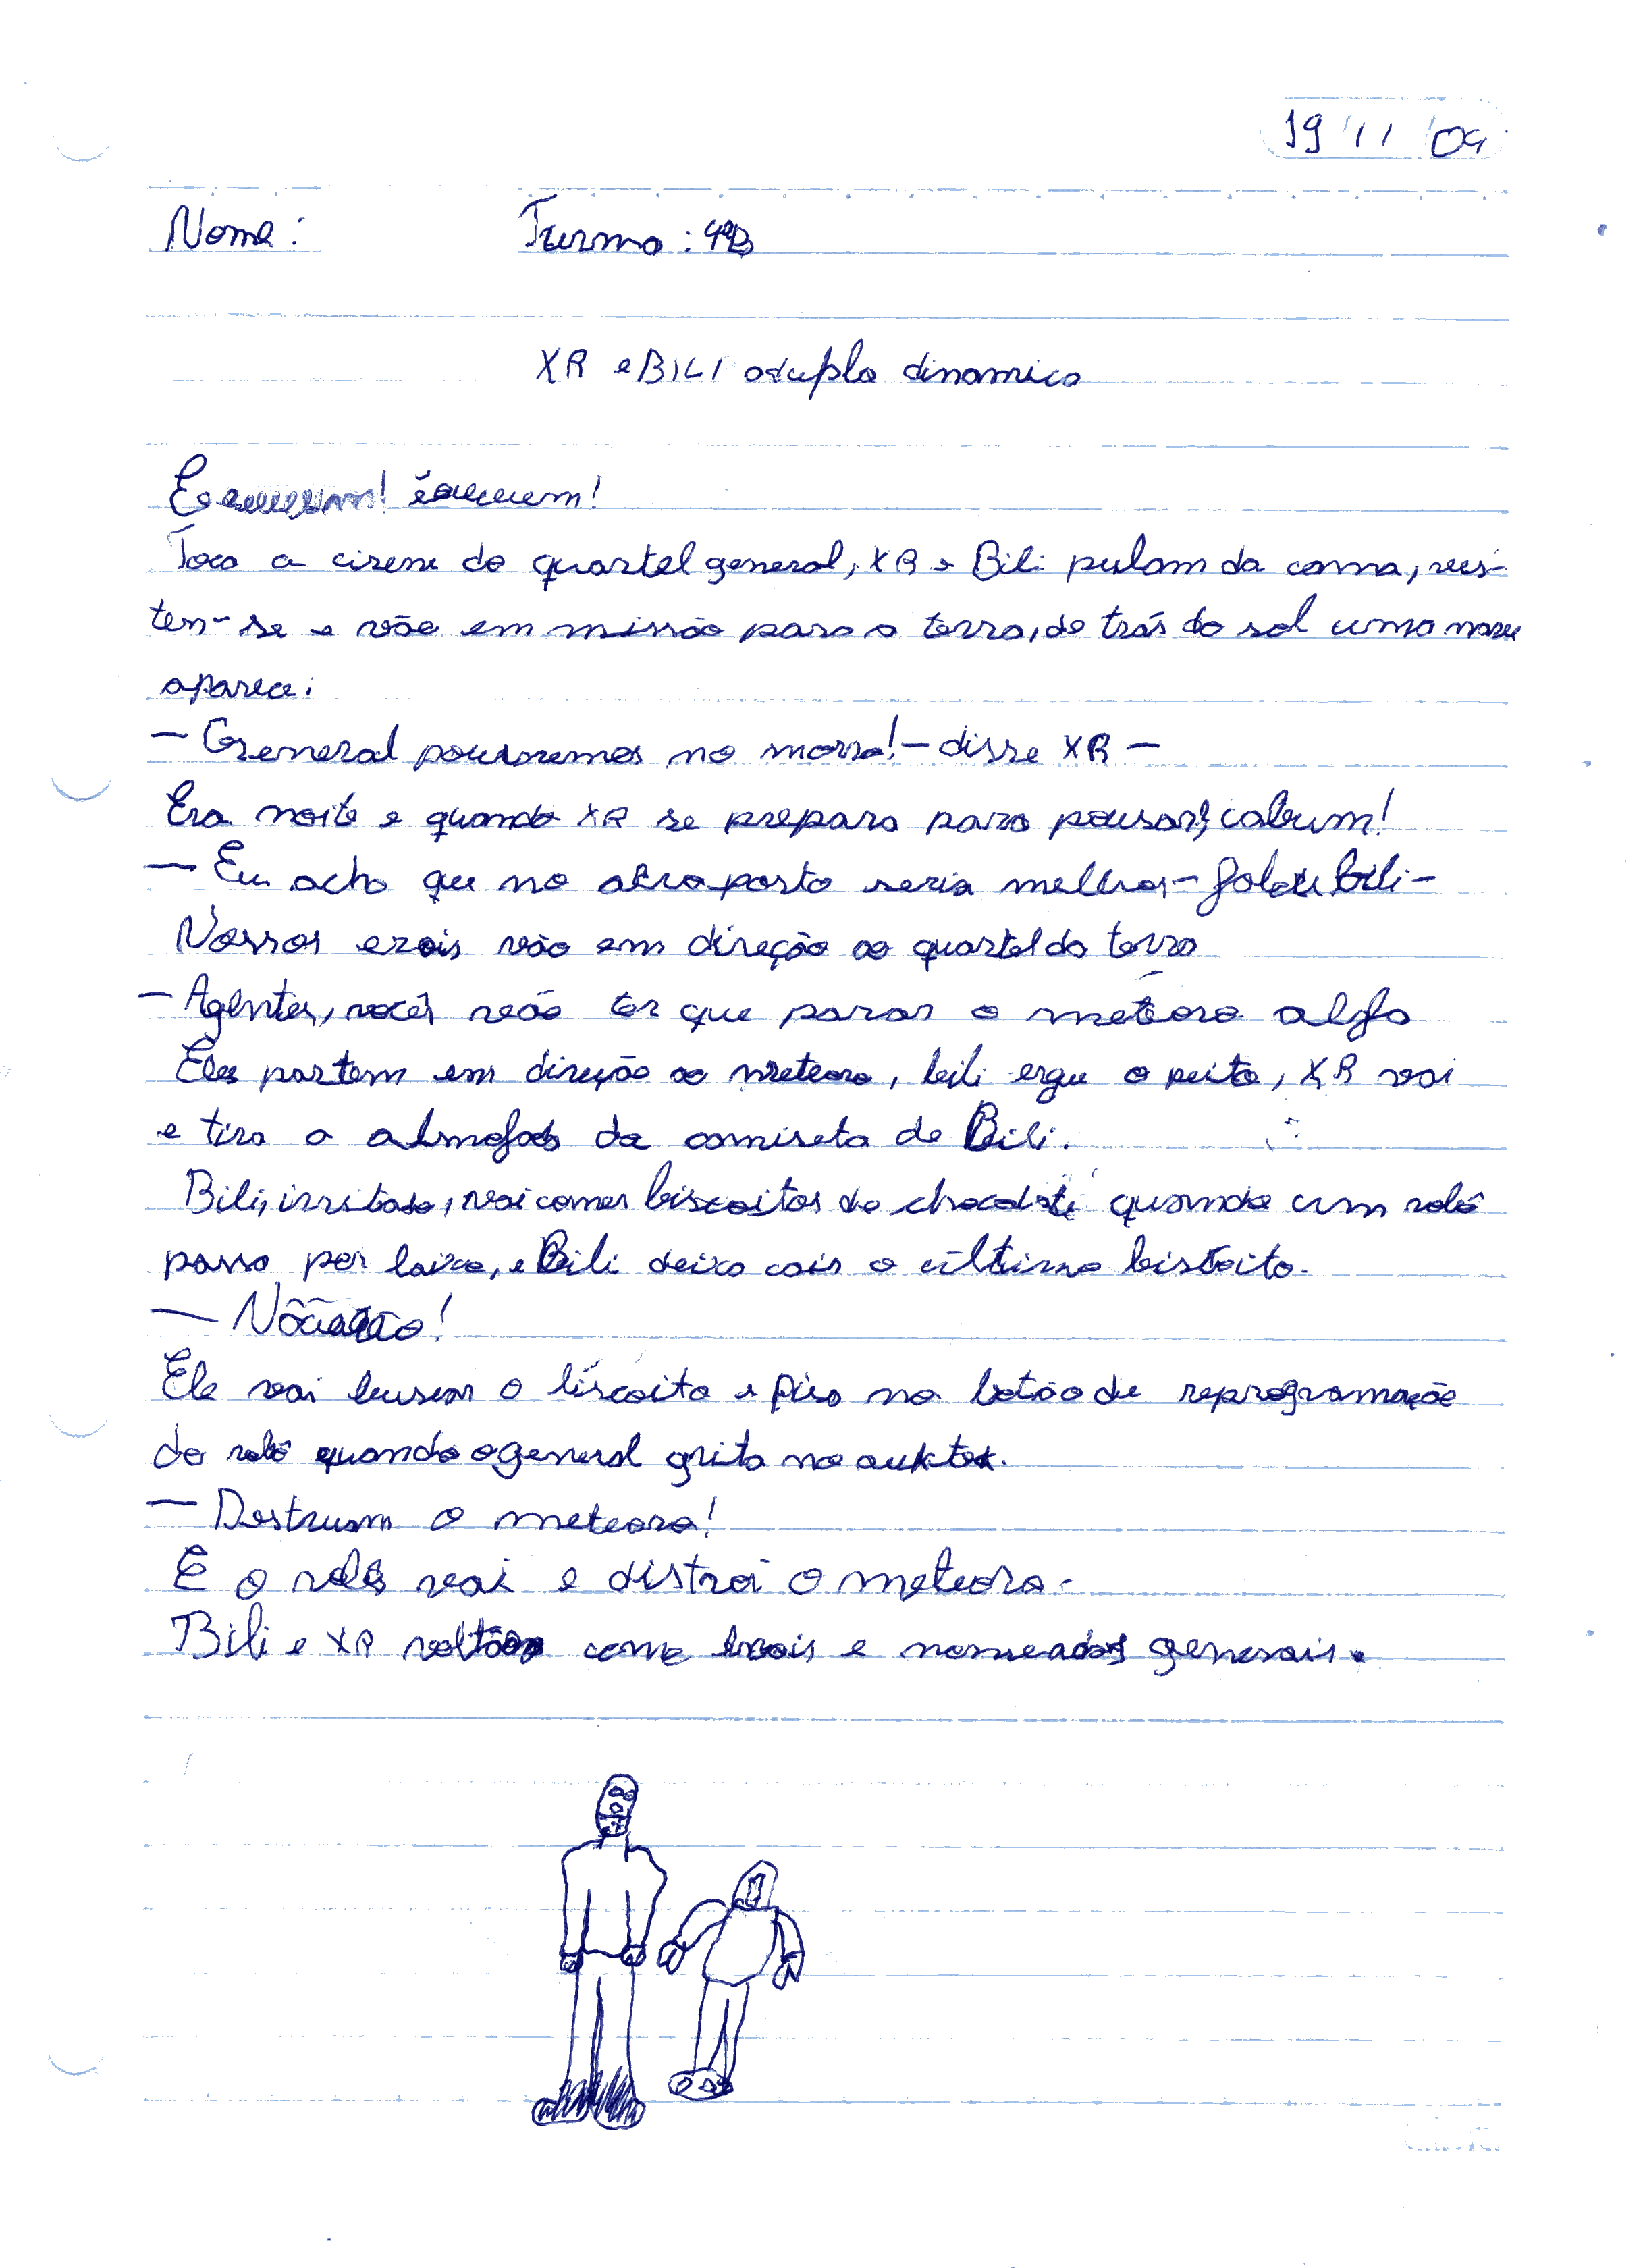 19 11 04
Nome: Turma: 4ªB
XR e BILI a dupla dinamica
Toca a cirene do quartel general, XR e Bili pulam da cama, ves-
tem-se e vão em missão para a terra, de trás do sol uma nave
aparece:
— General pousaremos no morro! — disse XR —
Era noite e quando XR se prepara para pousar, cabum!
— Eu acho que no aeroporto seria melhor — falou bili —
Nossos erois vão em direção ao quartel da terra
— Agentes, vocês vão ter que parar o meteoro alfa
Eles partem em direção ao meteoro, bili ergue o peito, XR vai
e tira a almofada da camiseta de Bili.
Bili, irritado, vai comer biscoitos de chocolate quando um robô
passa por baixo, e Bili deixa cair o último biscoito.
— Nãããão!
Ele vai buscar o biscoito e pisa no botão de reprogramação
do robô quando o general grita no
— Destruam o meteoro!
E o robô vai e distroi o meteoro.
Bili e XR voltão como erois e nomeados generais.